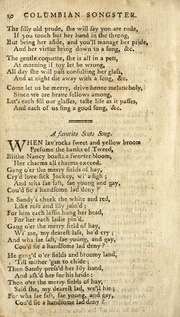 30 COLUMBIAN SONGSTER.
The silly old prude, she will say you are rude,
If you touch but her hand in the throng,
But bring her aside, and you'll manage her pride,
And her virtue bring down to a song, &c.
The gentle coquette, she is all in a pett,
At morning if toy let be wrong,
All day she will pass consulting her glass,
And at night die away with a song, &c.
Come let us be merry, drive hence melancholy,
Since we are brave fellows among,
Let's each fill our glasses, taste life as it passes,
And each of us sing a good song, &c.
A favorite Scots Song.
WHEN lav'rocks sweet and yellow broom
Perfume the banks of Tweed,
Blithe Nancy boasts a sweeter bloom,
Her charms all charms exceed.
Gang o'er the merry fields of hay,
Cry'd love-sick Jockey, wi' a sigh;
And wha sae fast, sae young and gay,
Cou'd sic a handsome lad deny?
In Sandy's cheek the white and red,
Like rose and lily join'd;
For him each lassie hung her head,
For her each ladie pin'd.
Gang o'er the merry field of hay,
Wi' me, my dearest lass, he'd cry;
And wha sae fast, sae young, and gay,
Cou'd sic a handsome lad deny?
He gang'd o'er fields and broomy land,
'Till mither 'gan to chide;
Then Sandy press'd her lily hand,
And ask'd her for his bride:
Then o'er the merry fields of hay,
Said she, my dearest lad, we'll hie;
For wha sae fast, sae young, and gay,
Cou'd sic a handsome lad deny?